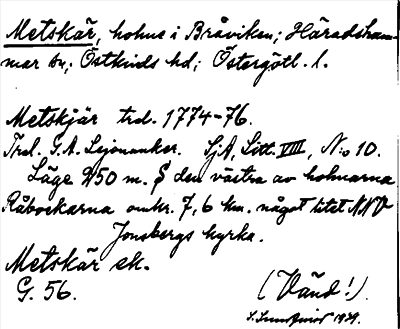 Metskär, holme i Bråviken; Häradsham-
mar sn, Östkinds hd; Östergötl. l.
Metskjär trol. 1774-76.
Trol. G. A. Lejonanker. SjA, Litt. VIII, N:o 10.
Läge 250 m. S den västra av holmarna
Råbockarna omkr. 7,6 km. något litet NNV
Jonsbergs kyrka.
Metskär ek.
G. 56.
(Vänd!).
1929.